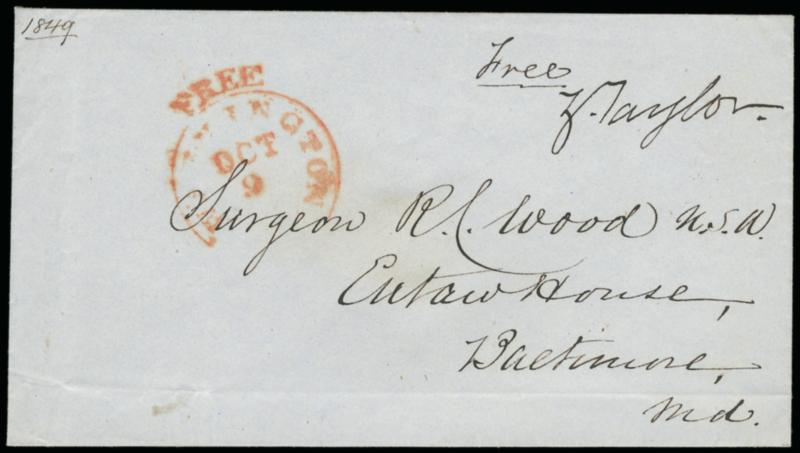 1849
Free
Z. Taylor.
FREE
WASHINGTON
OCT
9
Surgeon R. C. Wood U.S.A.
Eutaw House,
Baltimore,
Md.